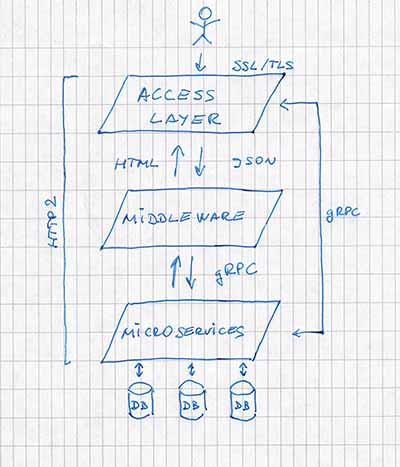 SSL/TLS
ACCESS
LAYER
HTML
JSON
HTTP2
MIDDLEWARE
gRPC
gRPC
MICROSERVICES
DB
DB
DB